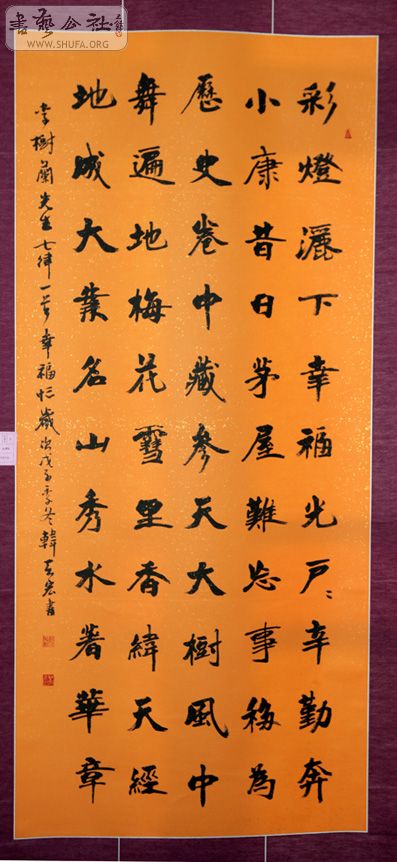 書藝公社
WWW.SHUFA.ORG
彩燈灑下幸福光戶〻辛勤奔
小康昔日茅屋難忘事移為
歷史卷中藏參天大樹風中
舞遍地梅花雪里香緯天經
地成大業名山秀水著華章
李樹蘭先生七律一首幸福忙歲次戊子季冬韓宏書